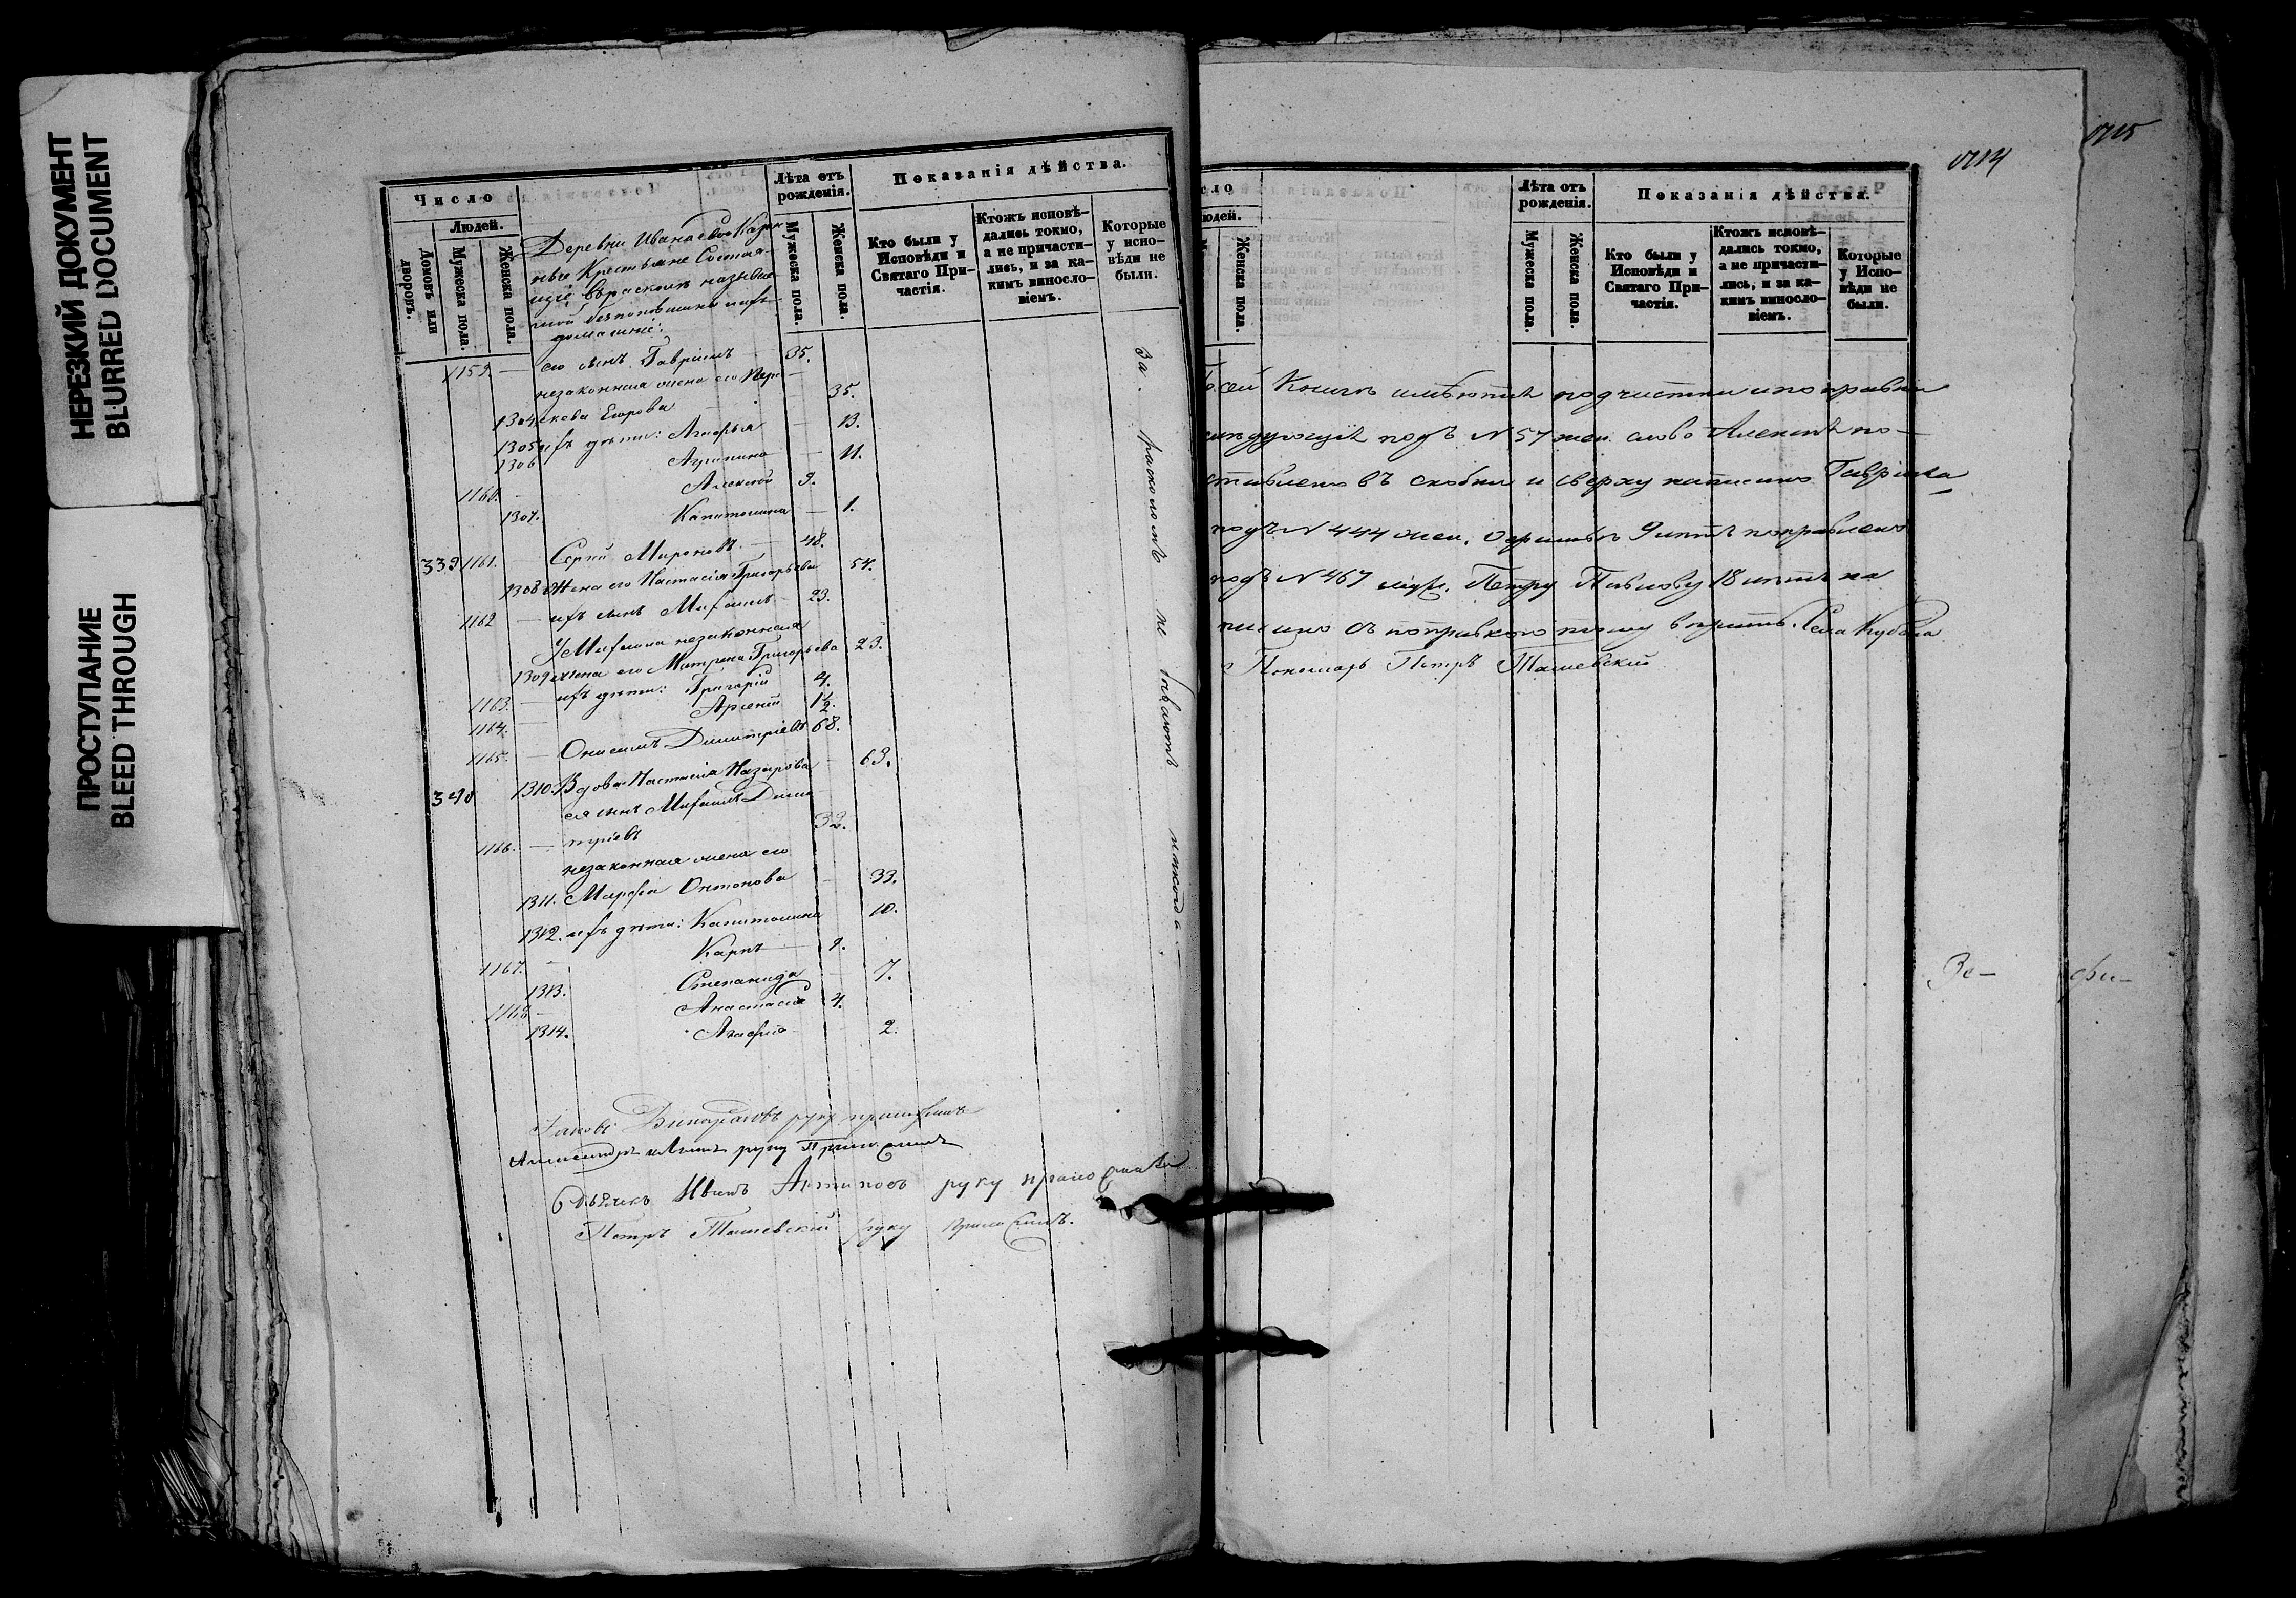 НЕРЕЗКИЙ ДОКУМЕНТ
BLURRED DOCUMENT
ПРОСТУПАНИЕ
BLEED THROUGH
Число
Людей.
Домовъ или дворовъ.
Мужеска пола.
Женска пола.
Лѣта отъ рожденія.
Мужеска пола.
Женска пола.
Показанія дѣйства.
Кто были у Исповѣди и Святаго Причастія.
Ктожъ исповѣдались токмо, а не причастились, и за какимъ винословіемъ.
Которые у исповѣди не были.
Деревни Иванаево Казен
ные Крестьяне Состоя
щіе въ расколѣ называе
мой безпоповщина и ихъ
домашніе:
1159. — его сынъ Гавріилъ 35.
незаконная жена его Пара
1304. скева Егорова — 35.
1305 ихъ дѣти: Агафья — 13.
1306 Агрипина — 11.
1160. — Алексѣй 9.
1307. Капитолина — 1.
339 1161. — Сергій Мироновъ. — 48.
1308 Жена его Настасія Григорьева 54.
1162 — ихъ сынъ Михаилъ 23.
У Михаила незаконная
1309 жена его Матрена Григорьева 23.
1163. — ихъ дѣти: Григорій 4.
1164. — Арсеній 1½.
1165. — Онисимъ Димитріевъ 68.
340 1310. Вдова Настасія Назарова — 63.
ея сынъ Михаилъ Дими
1166. — тріевъ 32.
незаконная жена его
1311. Марфа Онтонова — 33.
1312. ихъ дѣти: Капитолина 10.
1167. — Карпъ — 9.
1313. Степанида — 7.
1168 — Анастасій 4.
1314. Агафья 2.
За расколомъ не бываютъ никогда.
руку приложилъ
Александръ руку Приложилъ
Иванъ Антиповъ руку приложилъ
Петръ Ташевский руку приложилъ.
1714
1715
сло
юдей.
Женска пола.
Лѣта отъ рожденія.
Мужеска пола.
Женска пола.
Показанія дѣйства.
Кто были у Исповѣди и Святаго Причастія.
Ктожъ исповѣдались токмо, а не причастились, и за какимъ винословіемъ.
Которые у Исповѣди не были.
сей Книгѣ имѣются подчистки и поправки
слѣдующія подъ N 57 жен. слово Алексѣя по—
ставлено въ скобки и сверху написано Гаврила
подъ N 444 жен. 9 лѣтъ поправлено
подъ N 467 муж. Петру Павлову 18 лѣтъ на
писано съ поправкою тому вѣрить. Села
Пономарь Петръ Ташевский
Зе—